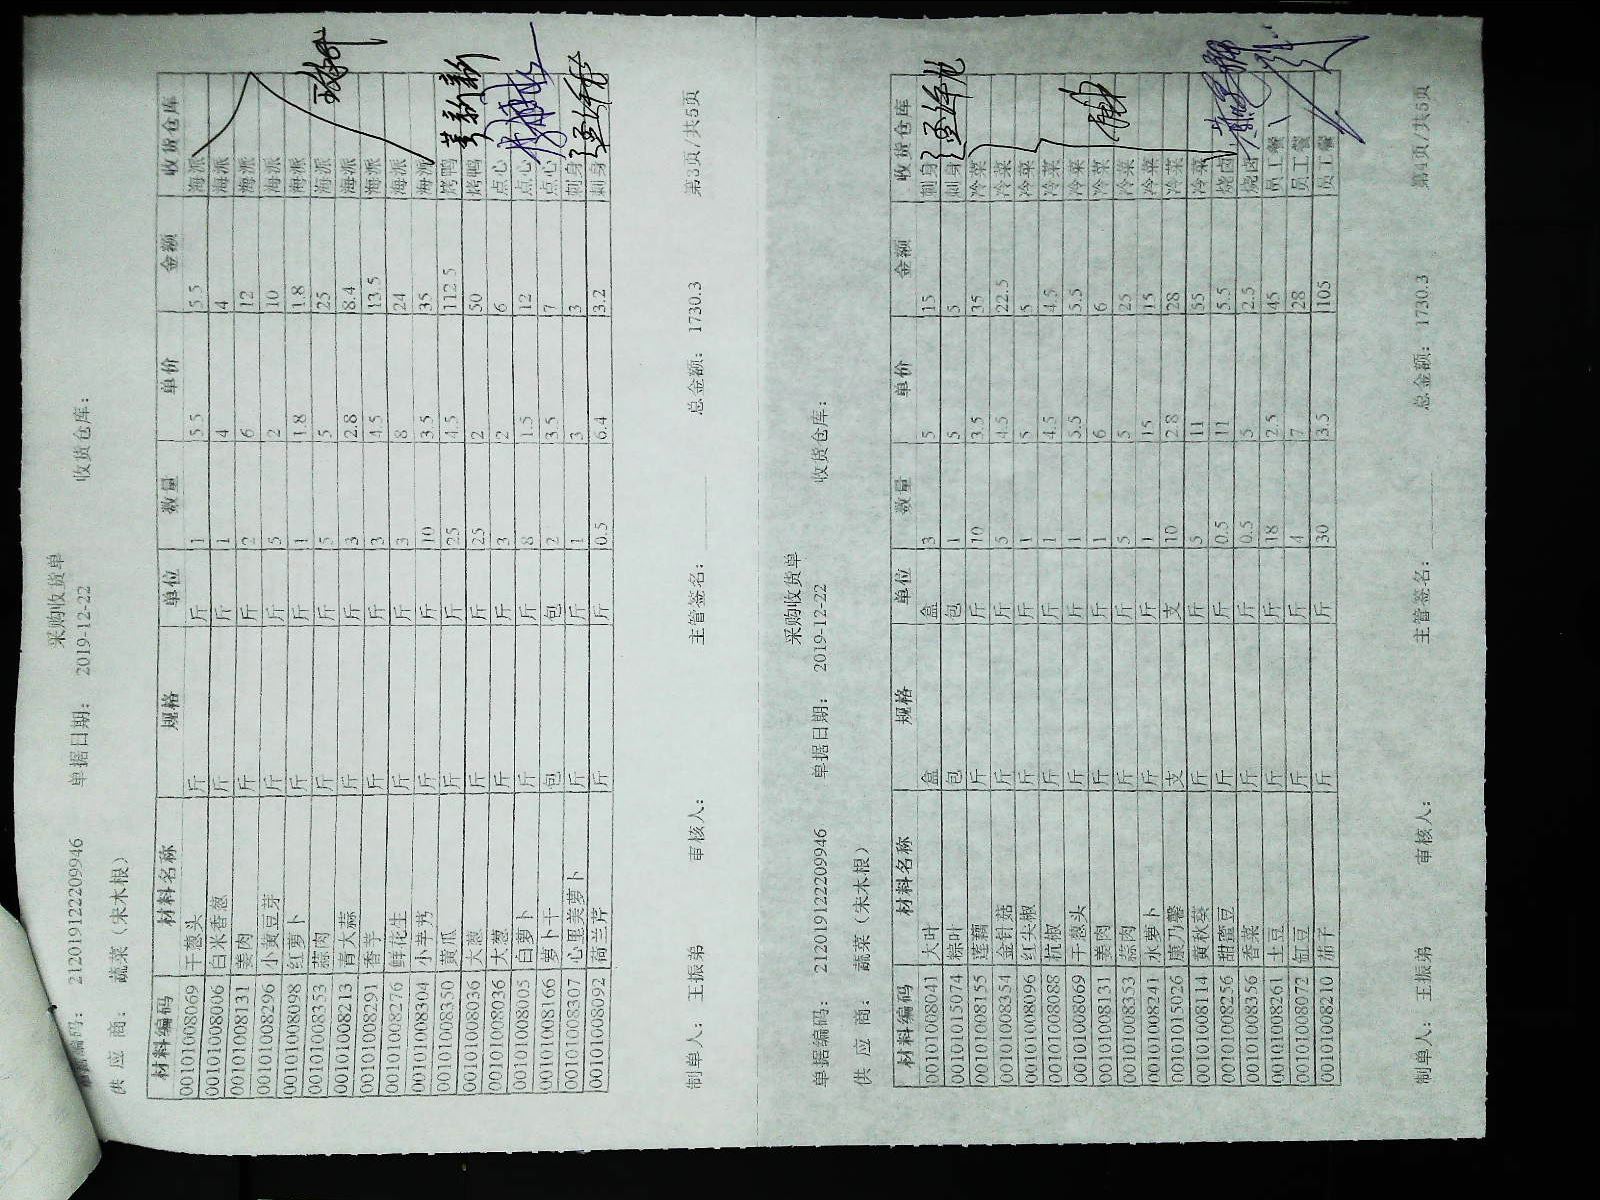 采购收货单
单据编码: 21201912220​9946 单据日期: 2019-12-22 收货仓库:
供 应 商: 蔬菜（宋木根）
材料编码 材料名称 规格 单位 数量 单价 金额 收货仓库
00101008069 干葱头 斤 斤 1 5.5 5.5 海派
00101008006 白米香葱 斤 斤 1 4 4 海派
00101008131 姜肉 斤 斤 2 6 12 海派
00101008296 小黄豆芽 斤 斤 5 2 10 海派
00101008098 红萝卜 斤 斤 1 1.8 1.8 海派
00101008353 蒜肉 斤 斤 5 5 25 海派
00101008213 青大蒜 斤 斤 3 2.8 8.4 海派
00101008291 香芋 斤 斤 3 4.5 13.5 海派
00101008276 鲜花生 斤 斤 3 8 24 海派
00101008304 小芋艿 斤 斤 10 3.5 35 海派
00101008350 黄瓜 斤 斤 25 4.5 112.5 烤鸭
00101008036 大葱 斤 斤 25 2 50 烤鸭
00101008036 大葱 斤 斤 3 2 6 点心
00101008005 白萝卜 斤 斤 8 1.5 12 点心
00101008166 萝卜干 包 包 2 3.5 7 点心
00101008307 心里美萝卜 斤 斤 1 3 3 刺身
00101008092 荷兰芹 斤 斤 0.5 6.4 3.2 刺身
制单人: 王振弟 审核人: 主管签名: 总金额: 1730.3 第3页/共5页
采购收货单
单据编码: 212019122209946 单据日期: 2019-12-22 收货仓库:
供 应 商: 蔬菜（宋木根）
材料编码 材料名称 规格 单位 数量 单价 金额 收货仓库
00101008041 大叶 盒 盒 3 5 15 刺身
00101015074 粽叶 包 包 1 5 5 刺身
00101008155 莲藕 斤 斤 10 3.5 35 冷菜
00101008354 金针菇 斤 斤 5 4.5 22.5 冷菜
00101008096 红尖椒 斤 斤 1 5 5 冷菜
00101008088 杭椒 斤 斤 1 4.5 4.5 冷菜
00101008069 干葱头 斤 斤 1 5.5 5.5 冷菜
00101008131 姜肉 斤 斤 1 6 6 冷菜
00101008353 蒜肉 斤 斤 5 5 25 冷菜
00101008241 水萝卜 斤 斤 1 15 15 冷菜
00101015026 康乃馨 支 支 10 2.8 28 冷菜
00101008114 黄秋葵 斤 斤 5 11 55 冷菜
00101008256 甜蜜豆 斤 斤 0.5 11 5.5 烧卤
00101008356 香菜 斤 斤 0.5 5 2.5 烧卤
00101008261 土豆 斤 斤 18 2.5 45 员工餐
00101008072 缸豆 斤 斤 4 7 28 员工餐
00101008210 茄子 斤 斤 30 3.5 105 员工餐
制单人: 王振弟 审核人: 主管签名: 总金额: 1730.3 第4页/共5页